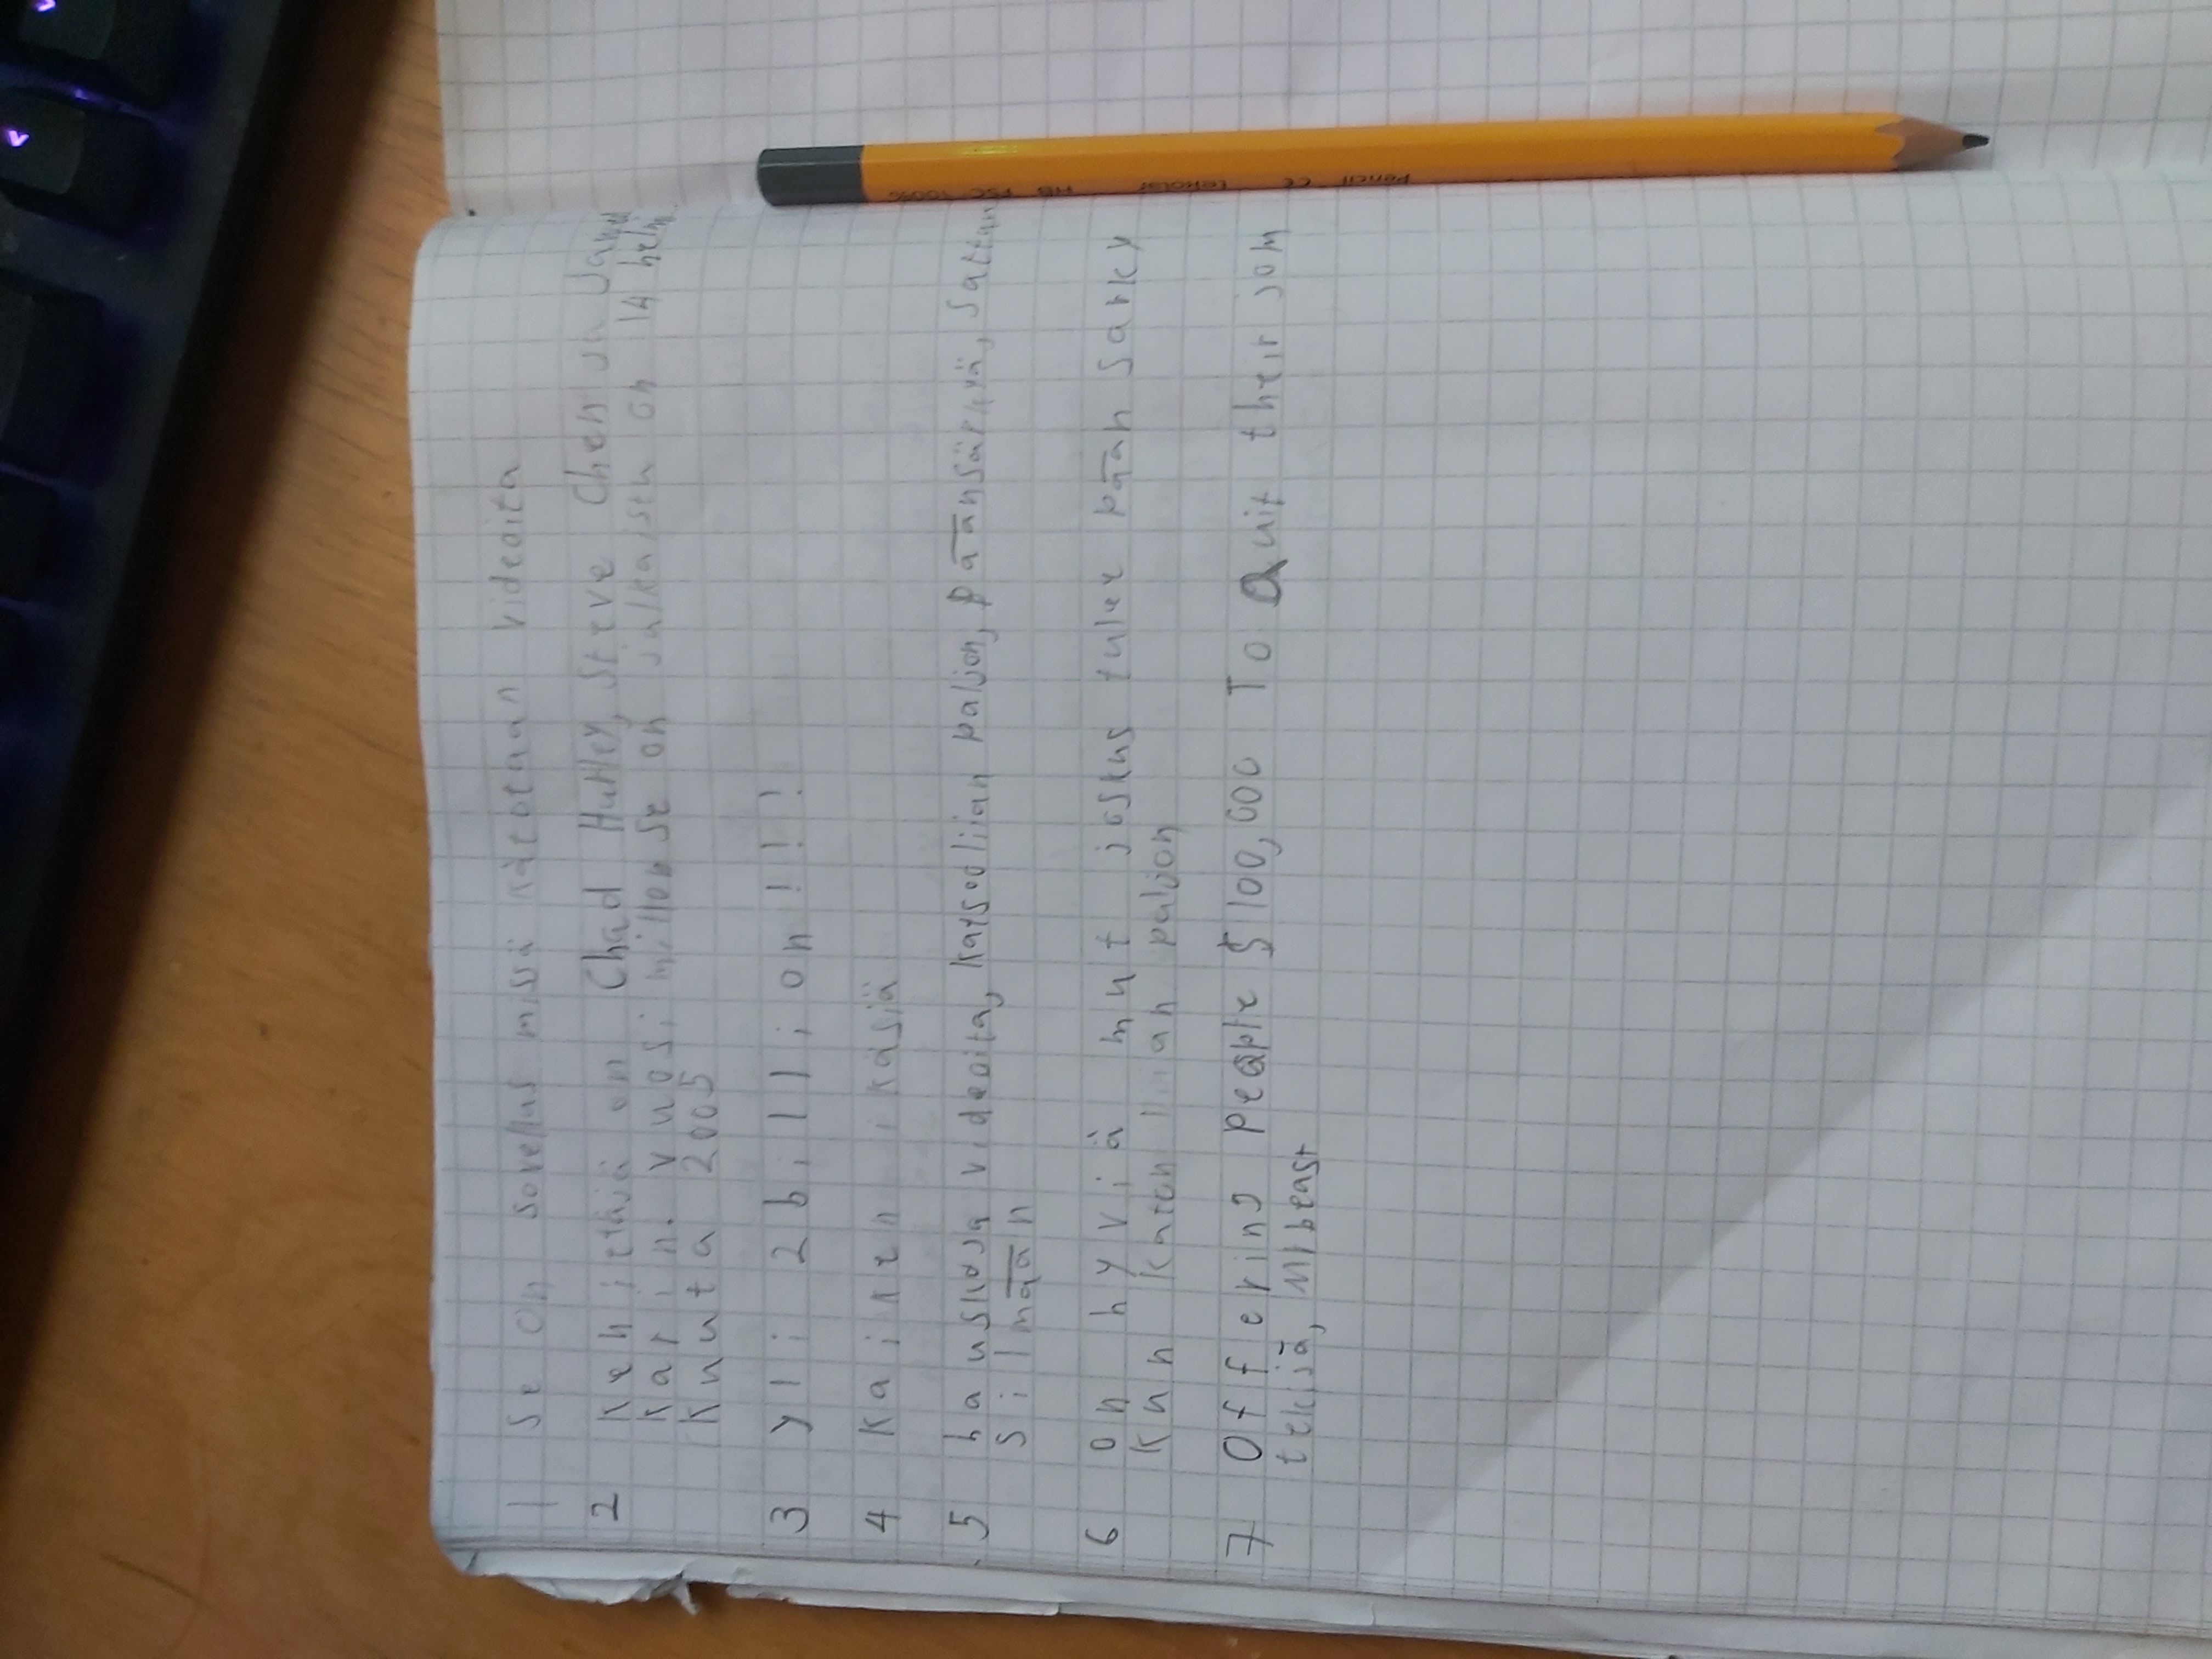 1 Se on sovellus missä katotaan videoita
2 Kehittäjä on Chad Hurley, Steve Chen ja Jawed
Karim. Vuosi millon se on julkaistu on 14 helm
Kuuta 2005
3 yli 2 billion !!!!
4 Kaiken ikäsiä
5 hauskoja videoita, katsoo liian paljon, päänsärkyä, sattuu
silmään
6 on hyviä mut joskus tulee pään särky
Kun katon liian paljon
7 Offering people $100,000 To Quit their Job
tekijä, MrBeast
Pencil CE Lekolar HB FSC 100%